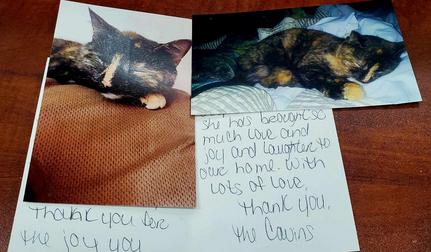 Thank you for
the joy you
she has brought so
much love and
joy and laughter to
our home. With
lots of love,
Thank you,
the Cowins